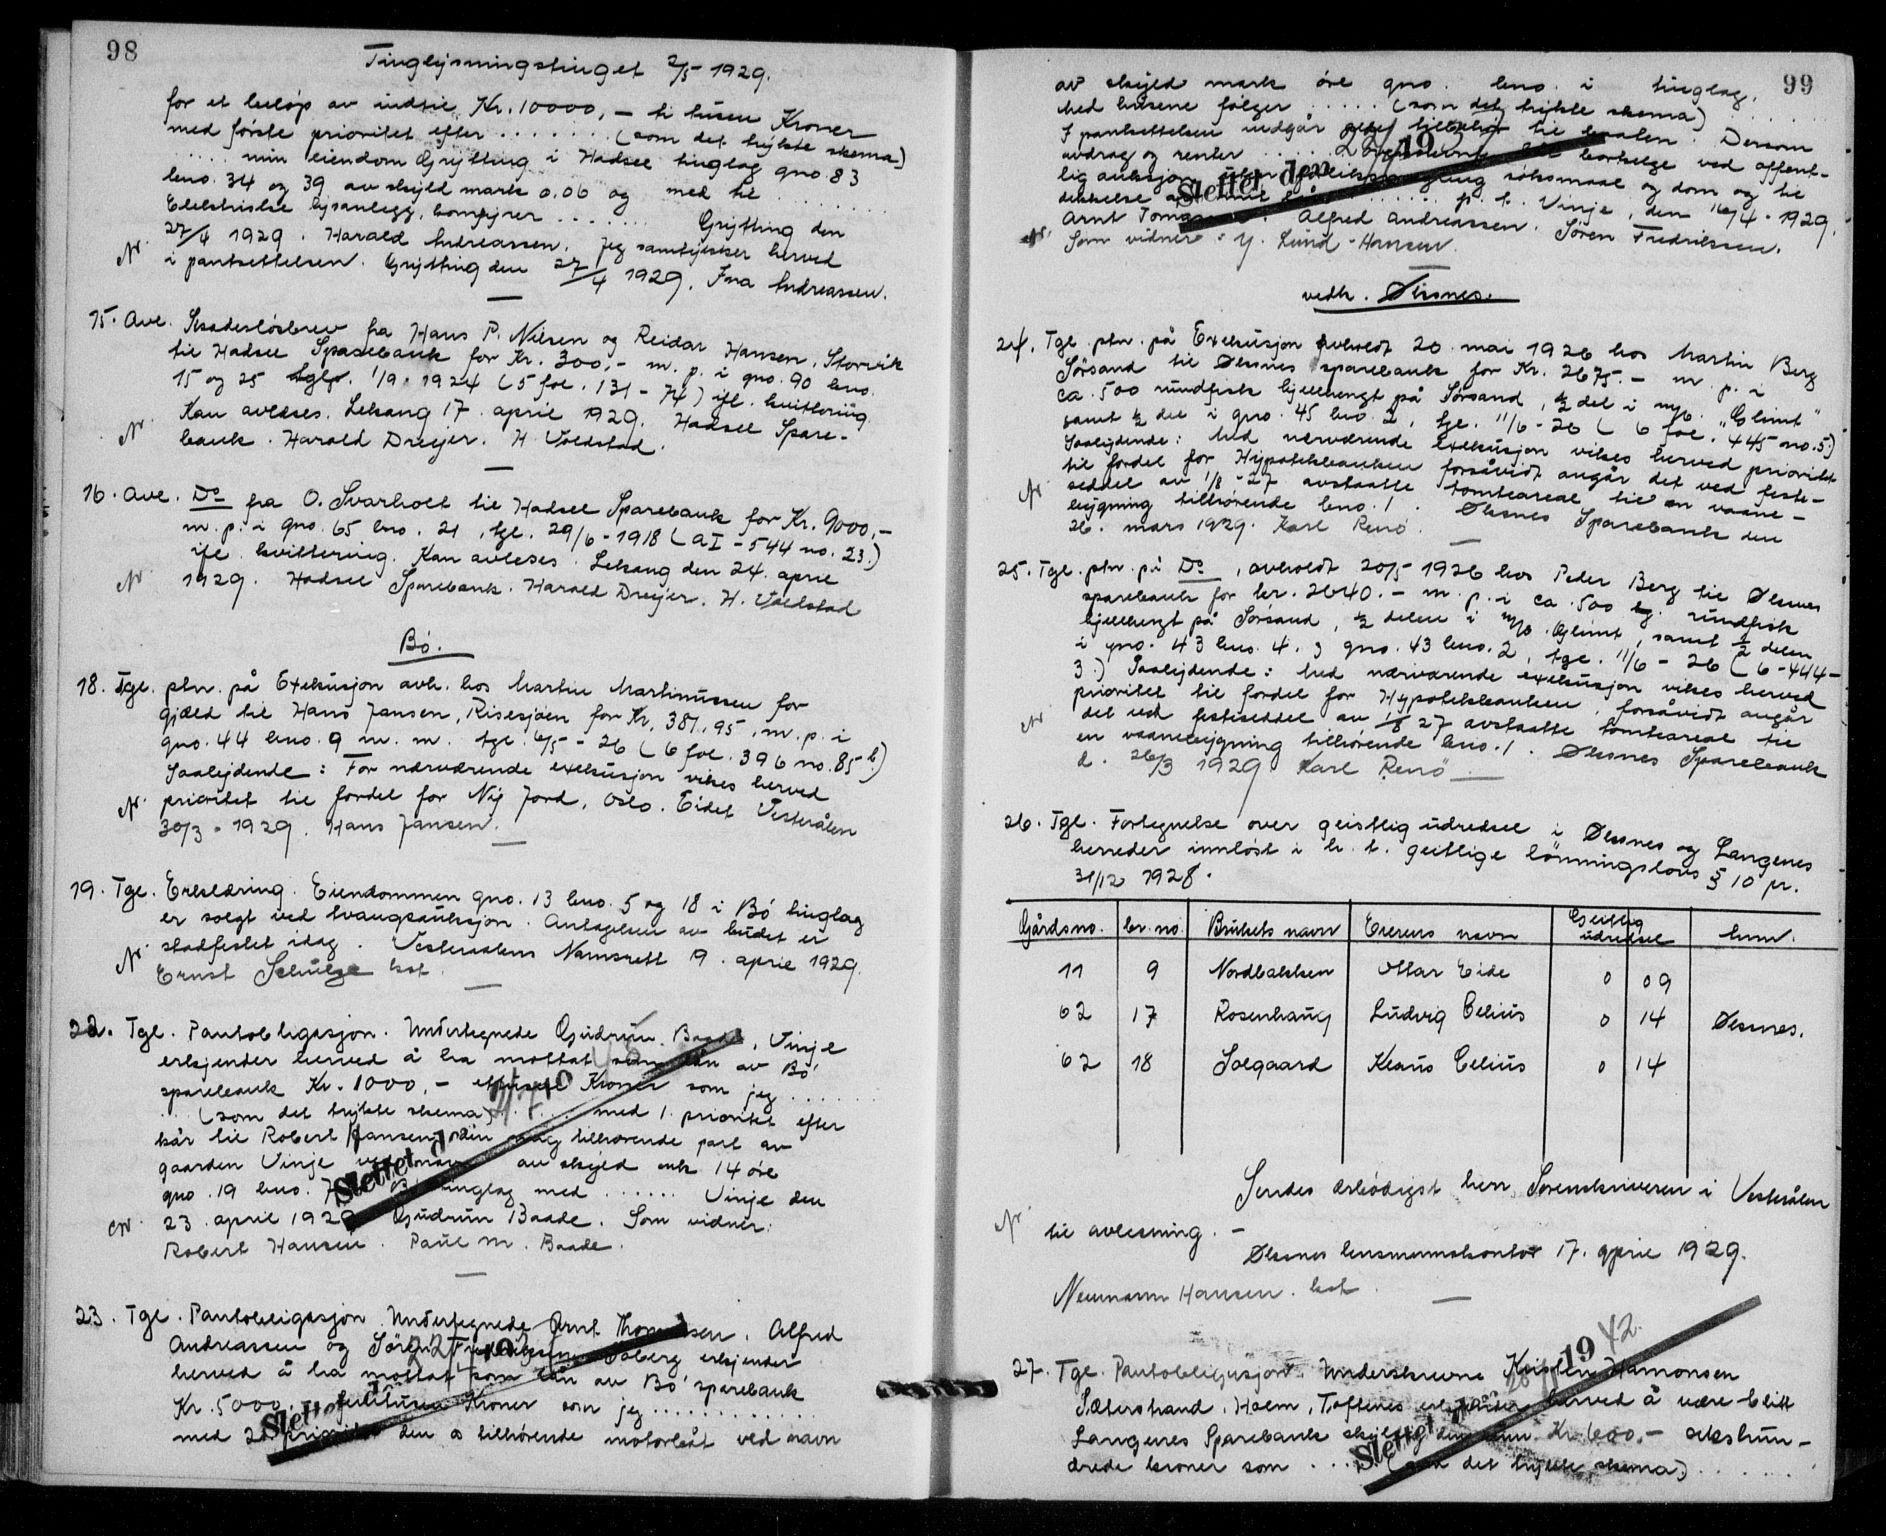 98
Tinglysningstinget 2/5-1929.
for et beløp av indtil Kr. 10000,- ti tusen Kroner
med første prioritet efter ....... (som det trykte skema)
.... min eiendom Grytting i Hadsel tinglag gno. 83
bno. 34 og 39 av skyld mark 0.06 og med til ........
Edelstrislse lysanlegg, komfyrer ....... Grytting den
27/4 1929. Harald Andreassen. Jeg samtykker herved
i pantsettelsen. Grytting den 27/4 1929. Fna Andreassen.
15. Avl. Skadesløsbrev fra Hans P. Nilsen og Reidar Hansen, Storvik
til Hadsel Sparebank for Kr. 300,- m. p. i gno. 90 bno.
15 og 25 tgl. 1/9. 1924 (5 fol. 131-74) ifl. kvittering.
Kan avleses. Lekang 17. april 1929. Hadsel Spare-
bank. Harald Dreyer. H. Voldstad.
16. Avl. Do fra O. Svarholt til Hadsel Sparebank for Kr. 9000,-
m. p. i gno. 65 bno. 21, tgl. 29/6-1918 (a I-544 no. 23.)
ifl. kvittering. Kan avleses. Lekang den 24. april
1929. Hadsel Sparebank. Harald Dreyer. H. Voldstad
Bö.
18. Tgl. ptn. på Exekusjon avh. hos Martin Martinussen for
gjæld til Hans Jansen, Risesjøen for Kr. 381,95, m. p. i
gno. 44 bno. 9 m. m. tgl. 6/5-26 (6 fol. 396 no. 85 b.)
Saalydende: For nærværende exekusjon vikes herved
prioritet til fordel for Ny Jord, Oslo. Eidet Vesterålen
30/3-1929. Hans Jansen.
19. Tgl. Erklæring. Eiendommen gno. 13 bno. 5 og 18 i Bö tinglag
er solgt ved tvangsauksjon. Antagelsen av budet er
stadfestet idag. Vesteraalens Namsrett 19. april 1929.
Ernst Schulze kst.
22. Tgl. Pantobligasjon. Undertegnede Gudrun Baade, Vinje
erkjender herved å ha mottat som lån av Bö
sparebank Kr. 1000,- ettusen Kroner som jeg ......
... (som det trykte skema) .... med 1. prioritet efter
kår til Robert Hansen min mag tilhørende part av
gaarden Vinje ved navn av skyld mk 14 øre
gno. 19 bno. 7 i Bö tinglag med ...... Vinje den
23. april 1929. Gudrun Baade. Som vidner:
Robert Hansen. Paul M. Baade.
Slettet den
23. Tgl. Pantobligasjon. Undertegnede Arnt Thomassen, Alfred
Andreassen og Sören Fredriksen erkjender
herved å ha mottat som lån av Bö sparebank
Kr. 5000, femtusen Kroner som jeg .............
med 2. prioritet den os tilhørende motorbåt ved navn
Slettet den
99
av skyld mark öre gno. bno. i tinglag,
Med husene følger ..... (som det trykte skema) ......
I pantsettelsen indgår til baaten. Dersom
avdrag og renter ..... bortselge ved offent-
lig auksjon uten forlikmægling søksmaal og dom og til
dækkelse av p. t. Vinje, den 16/4-1929.
Arnt Tomassen. Alfred Andreassen. Sören Fredriksen.
Som vidner: Y. Lund-Hansen.
Slettet den 19
vedh. Øksnes.
24. Tgl. ptn. på Exekusjon avholdt 20. mai 1926 hos Martin Berg
Sørsand til Øksnes sparebank for Kr. 2675.- m. p. i
ca. 500 rundfisk hjellhengt på Sørsand, ½ del i m/b. "Glimt"
samt ½ del i gno. 45 bno. 2, tgl. 11/6-26 (6 fol. 445 no. 5.)
Saalydende: Med nærværende exekusjon vikes herved prioritet
til fordel for Hypotekbanken forsåvidt angår det ved feste-
seddel av 1/8-27 avstaatte tomteareal til en vaane-
bygning tilhørende bno. 1. Øksnes Sparebank den
26. mars 1929. Karl Renö.
25. Tgl. ptn. på Do, avholdt 20/5 1926 hos Peder Berg til Øksnes
sparebank for kr. 2640.- m. p. i ca. 500 kg. rundfisk
hjellhengt på Sørsand, ½ delen i m/b. Glimt, samt ½ delen
i gno. 43 bno. 4. og gno. 43 bno. 2, tgl. 11/6-26 (6-444-
3.) Saalydende: Med nærværende exekusjon vikes herved
prioritet til fordel for Hypotekbanken forsåvidt angår
det ved festeseddel av 1/8 27 avstaatte tomteareal til
en vaanebygning tilhørende bno. 1. Øksnes Sparebank
d. 26/3 1929. Karl Renö
26. Tgl. Fortegnelse over geistlig utredsel i Øksnes og Langenes
herreder innløst i h. t. geistlige lönningslovs § 10 pr.
31/12 1928.
Gårdsno. br. no. Brukets navn Eierens navn Geistlig utredsel Anm.
11 9 Nordbakken Ottar Eide 0 09
62 17 Rosenhaug Ludvig Celius 0 14 Øksnes.
62 18 Solgaard Klaus Celius 0 14
Sendes ærbødigst herr Sorenskriveren i Vesterålen
til avlesning.-
Øksnes lensmannskontor 17. april 1929.
Neumann Hansen. kst.
27. Tgl. Pantobligasjon. Underskrevne Hamonsen
Sæterstrand, Holm, Toftenes erkjender herved å være blitt
Langenes Sparebank skyldig en sum Kr. 600.- sekshun-
drede kroner som .... (som det trykte skema) ......
Slettet den 19 42